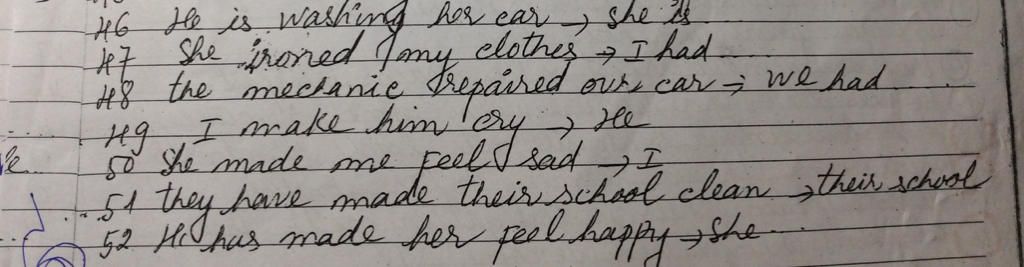 46 He is washing her car → she is
47 She ironed my clothes → I had
48 the mechanic repaired our car → we had
49 I make him cry → He
50 She made me feel sad → I
51 they have made their school clean → their school
52 He has made her feel happy → She